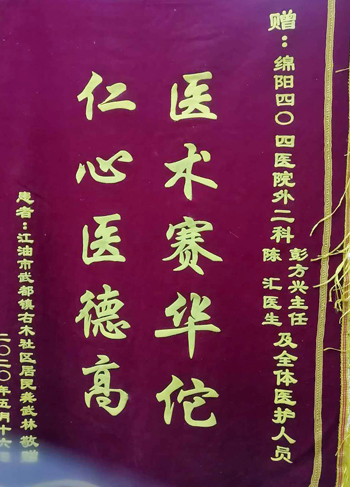 赠：绵阳四〇四医院外二科
彭方兴主任
陈 汇医生
及全体医护人员
医术赛华佗
仁心医德高
患者：江油市武都镇右木社区居民龚武林 敬赠
二〇二〇年五月十六